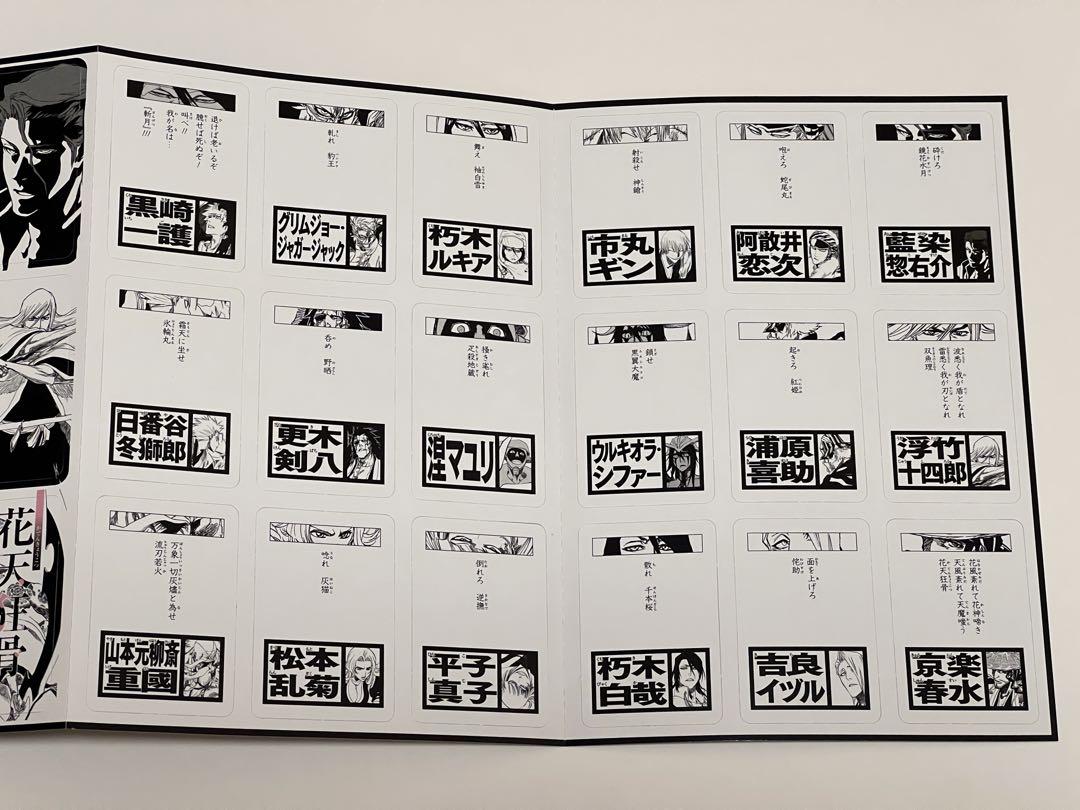 退けば老いるぞ
臆せば死ぬぞ!
叫べ!!
我が名は…
『斬月』!!!
黒崎
一護
軋れ 豹王
グリムジョー・
ジャガージャック
舞え 袖白雪
朽木
ルキア
射殺せ 神鎗
市丸
ギン
咆えろ 蛇尾丸
阿散井
恋次
砕けろ
鏡花水月
藍染
惣右介
霜天に坐せ
氷輪丸
日番谷
冬獅郎
呑め 野晒
更木
剣八
掻き毟れ
疋殺地蔵
涅マユリ
鎖せ
黒翼大魔
ウルキオラ・
シファー
起きろ 紅姫
浦原
喜助
波悉く我が盾となれ
雷悉く我が刃となれ
双魚理
浮竹
十四郎
花天狂骨
万象一切灰燼と為せ
流刃若火
山本元柳斎
重國
唸れ 灰猫
松本
乱菊
倒れろ 逆撫
平子
真子
散れ 千本桜
朽木
白哉
面を上げろ
侘助
吉良
イヅル
花風紊れて花神啼き
天風紊れて天魔嗤う
花天狂骨
京楽
春水